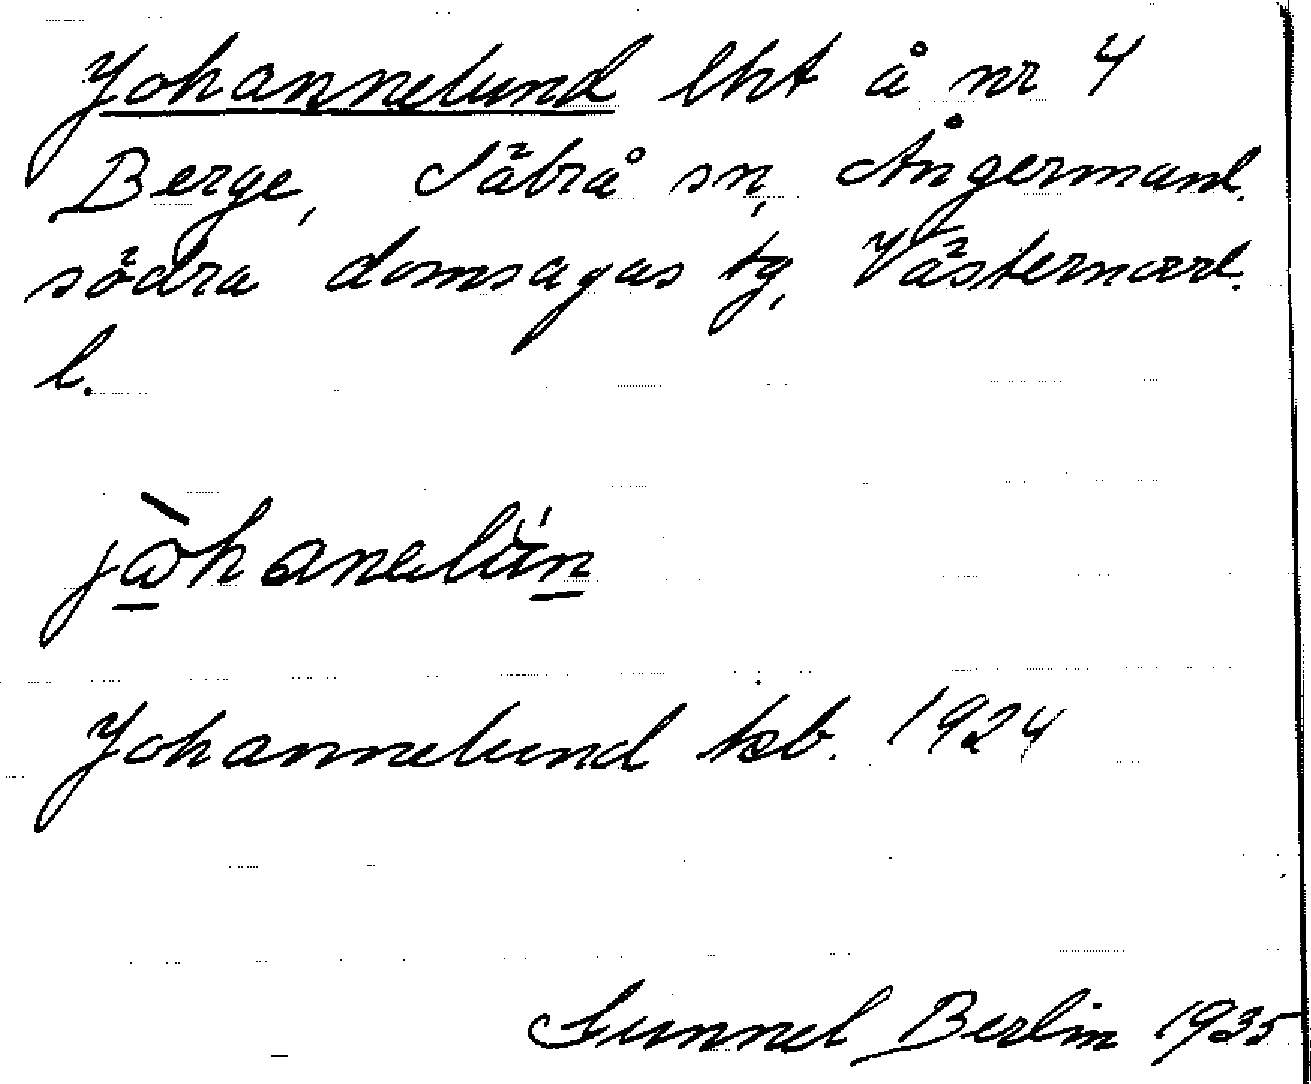 Johannelund lht å nr 4
Berge, Säbrå sn, Ångermanl.
södra domsagas tg, Västernorrl.
l.
jòhanelün
Johannelund kb. 1924
Gunnel Berlin 1935